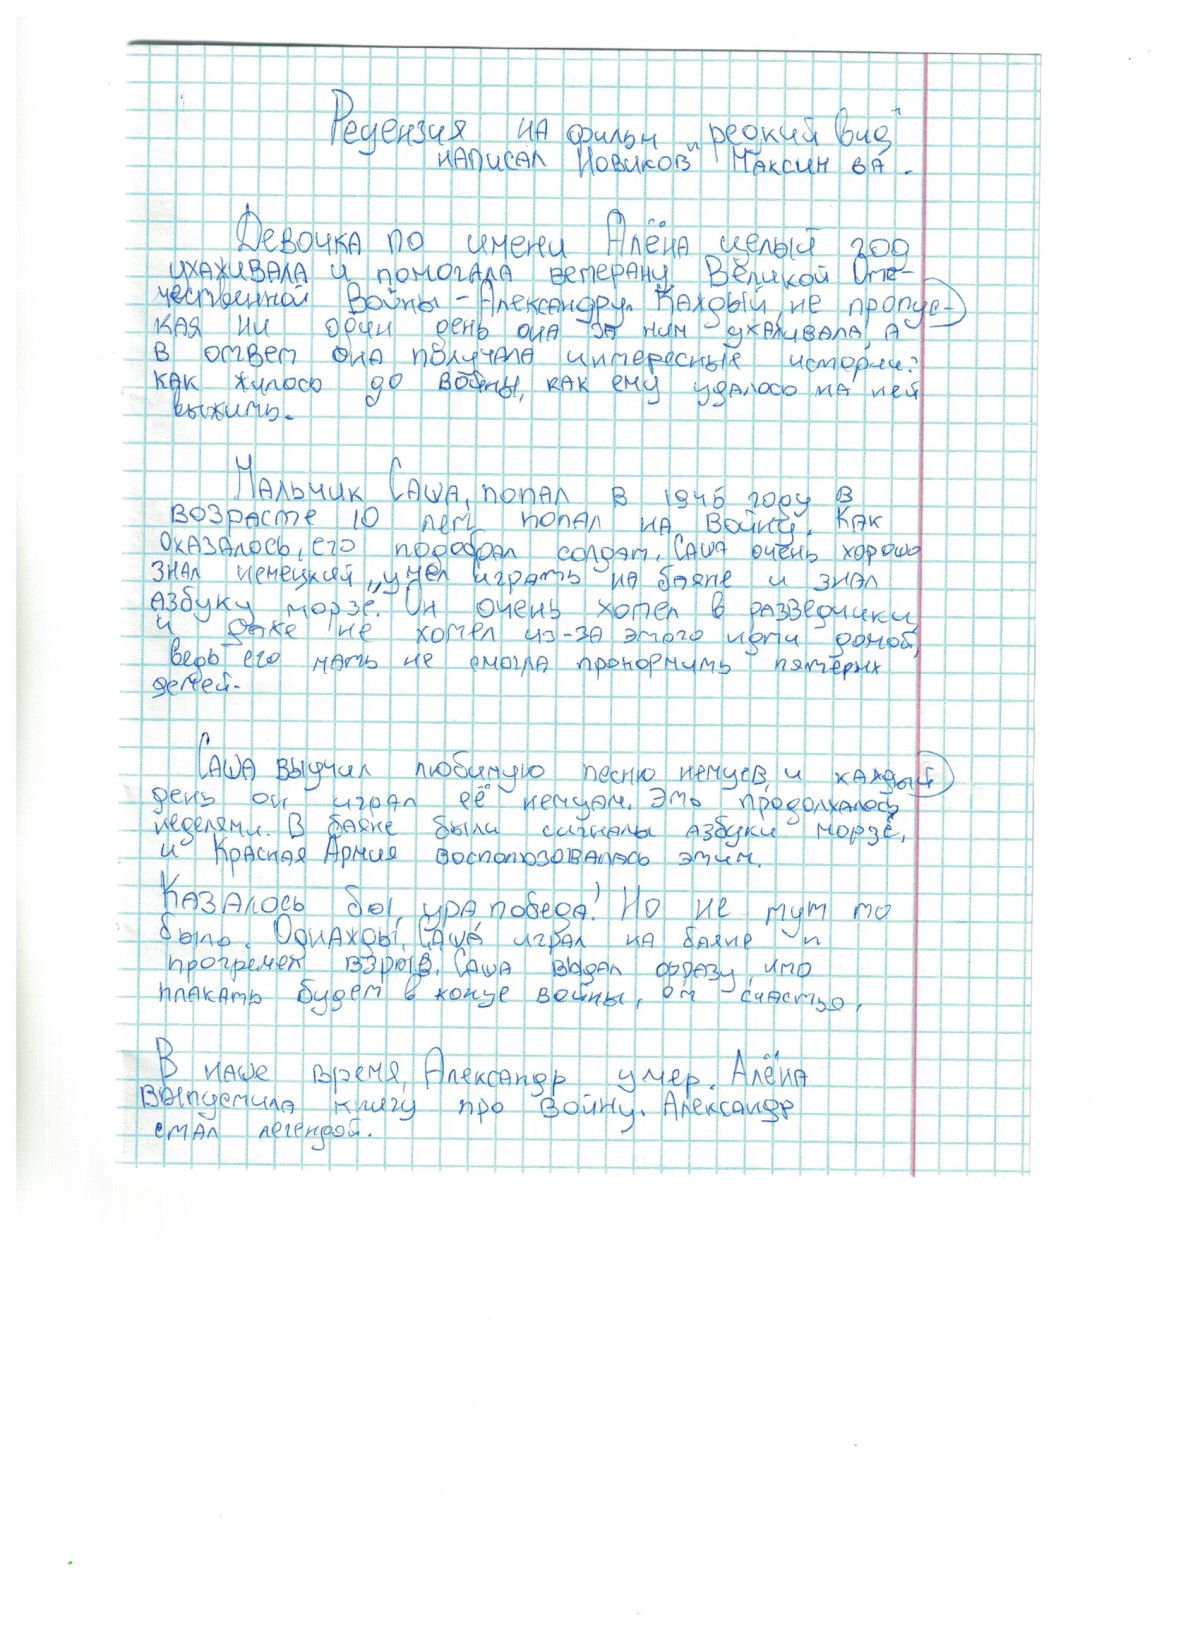 Рецензия на фильм „редкий вид"
написал Новиков Максим 6А.
Девочка по имени Алёна целый год
ухаживала и помогала ветерану Великой Оте-
чественной Войны - Александру. Каждый, не пропус-
кая ни один день она за ним ухаживала, а
в ответ она получала интересные истории:
как жилось до войны, как ему удалось на ней
выжить.
Мальчик Саша, попал в 1945 году в
возрасте 10 лет попал на Войну. Как
оказалось, его подобрал солдат. Саша очень хорошо
знал немецкий, умел играть на баяне и знал
азбуку морзе. Он очень хотел в разведчики
и даже не хотел из-за этого идти домой,
ведь его мать не смогла прокормить пятерых
детей.
Саша выучил любимую песню немцев, и каждый
день он играл её немцам. Это продолжалось
неделями. В баяне были сигналы азбуки морзе,
и Красная Армия воспользовалась этим.
Казалось бы, ура, победа! Но не тут то
было. Однажды, Саша играл на баяне и
прогремел взрыв. Саша выдал фразу, что
плакать будет в конце войны, от счастья.
В наше время, Александр умер. Алёна
выпустила книгу про Войну. Александр
стал легендой.